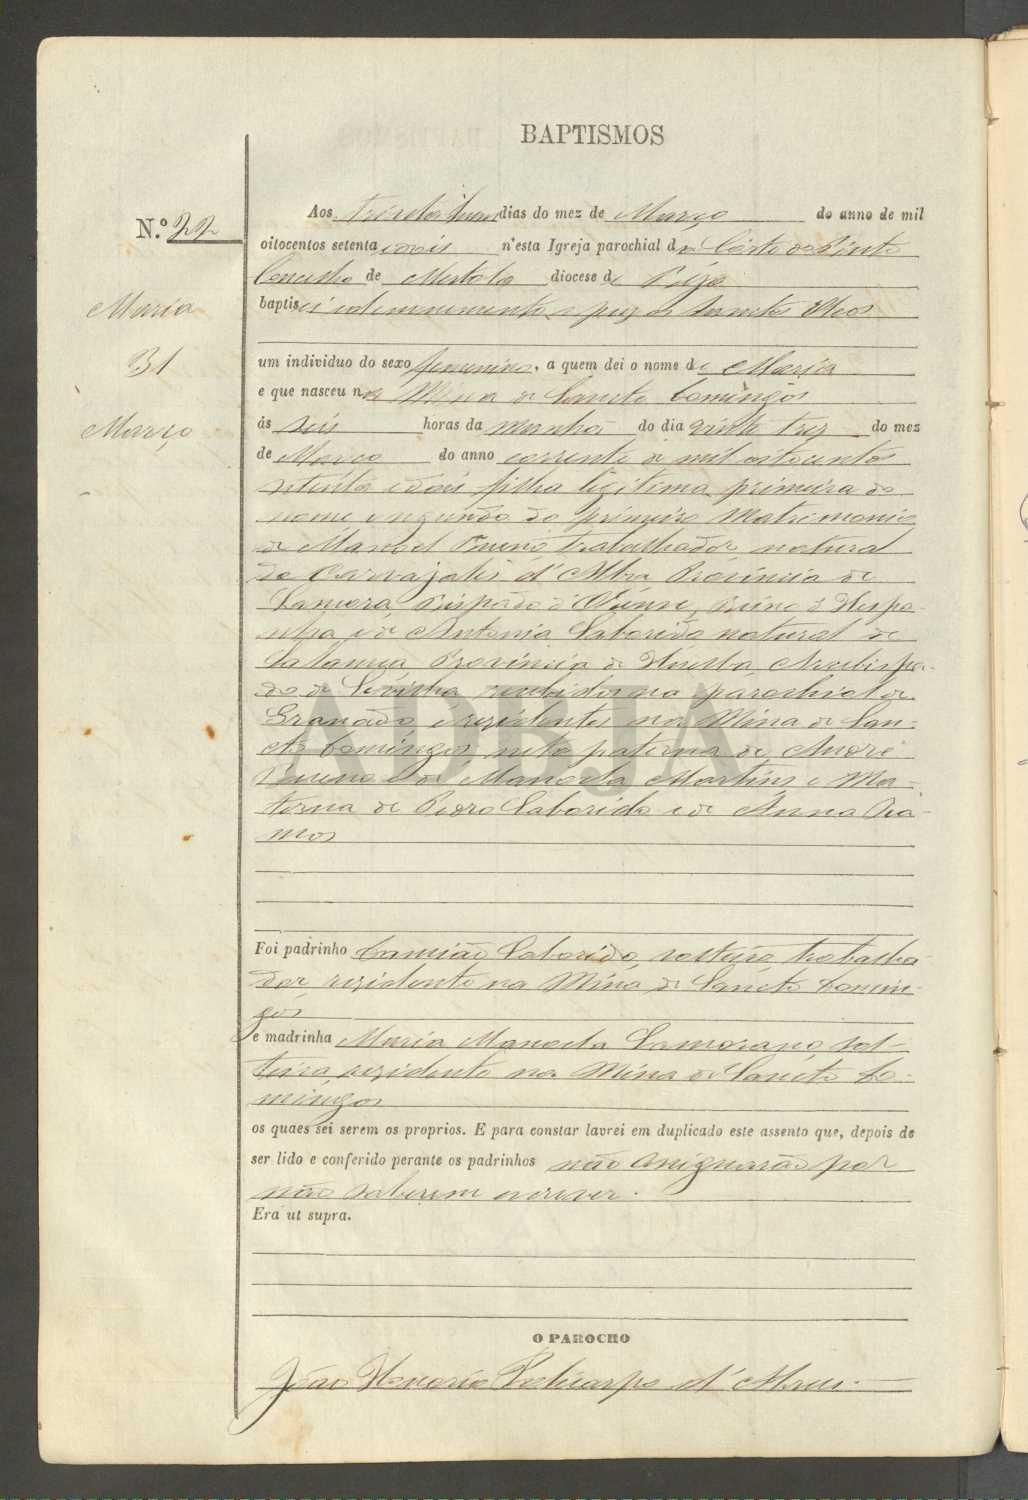 BAPTISMOS
N.º 22
Maria
31
Março
Aos trinta hum dias do mez de Março do anno de mil
oitocentos setenta e dois n'esta Igreja parochial da Córte do Pinto
Concelho de Mertola diocese de Béja
baptisei solemnemente e puz os Sanctos Oleos
um individuo do sexo femenino, a quem dei o nome de Maria
e que nasceu na Mina de Sancto Domingos
ás seis horas da manhã do dia vinte trez do mez
de Março do anno corrente de mil oitocentos
setenta e dois filha legitima primeira do
nome e segunda do primeiro Matrimonio
de Manoel Bueno trabalhador natural
de Carvajales d'Alba Provincia de
Samora, Bispado d' Reino d'Hespa-
nha e de Antonia Laborida natural de
Provincia de Huelva Arcebispa-
do de Sevilha recebidos na parochia de
Granado, e residentes na Mina de San-
cto Domingos, neta paterna de André
Bueno e de Manoela Martins e Ma-
terna de Pedro Laborido e de Anna Ra-
mos
Foi padrinho Damião Laborido, solteiro trabalha-
dor residente na Mina de Sancto Domin-
gos
e madrinha Maria Manoela Samorano sol-
teira, residente na Mina de Sancto Do-
mingos
os quaes sei serem os proprios. E para constar lavrei em duplicado este assento que, depois de
ser lido e conferido perante os padrinhos não assignarão por
não saberem escrever.
Era ut supra.
O PAROCHO
João Policarpo d'
ADBJA